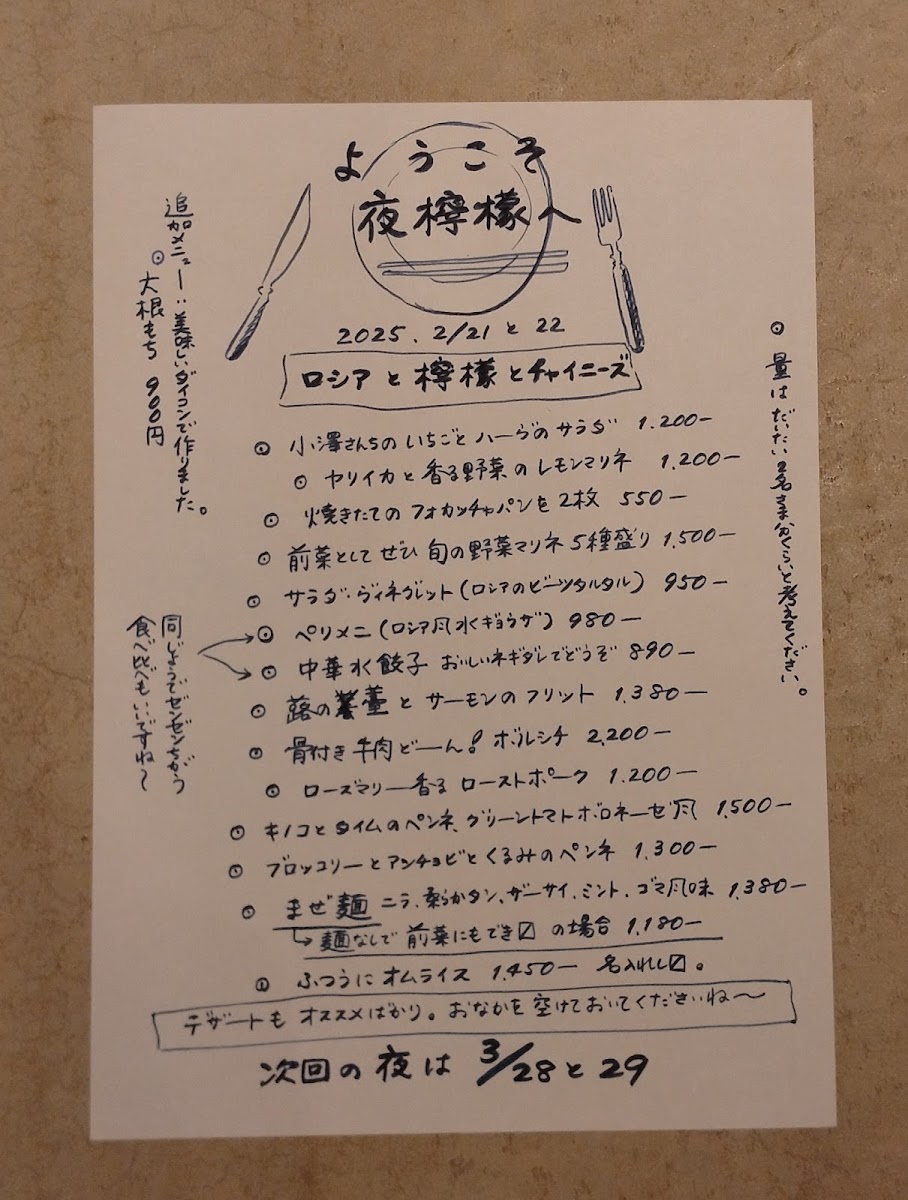 ようこそ
夜檸檬へ
2025.2/21と22
ロシアと檸檬とチャイニーズ
◉ 小澤さんちのいちごとハーブのサラダ 1.200-
◉ ヤリイカと香る野菜のレモンマリネ 1,200-
◉ 焼きたてのフォカッチャパンを2枚 550-
◉ 前菜としてぜひ旬の野菜マリネ5種盛り 1,500-
◉ サラダ・ヴィネグレット(ロシアのビーツタルタル) 950-
◉ ペリメニ(ロシア風水ギョウザ) 980-
◉ 中華水餃子 おいしいネギダレでどうぞ 890-
◉ 蕗の薹とサーモンのフリット 1,380-
◉ 骨付き牛肉どーん!ボルシチ 2,200-
◉ ローズマリー香るローストポーク 1.200-
◉ キノコとタイムのペンネ、グリーントマトボロネーゼ風 1,500-
◉ ブロッコリーとアンチョビとくるみのペンネ 1,300-
◉ まぜ麺 ニラ、柔らかタン、ザーサイ、ミント、ゴマ風味 1,380-
↳ 麺なしで前菜にもでき〼 の場合 1,180-
◉ ふつうにオムライス 1,450- 名入れし〼。
デザートもオススメばかり。おなかを空けておいてくださいね〜
次回の夜は 3/28と29
◉ 量はだいたい2名さま分くらいと考えてください。
追加メニュー:美味しいダイコンで作りました。
◉ 大根もち 900円
同じようでゼンゼンちがう
食べ比べもいいですね〜